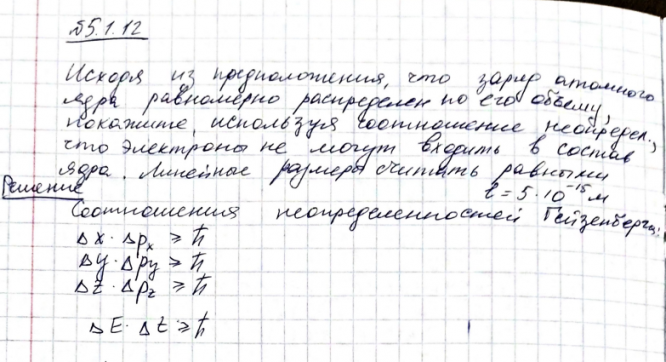 №5.1.12
Исходя из предположения, что заряд атомного
ядра равномерно распределен по его объему,
покажите, используя соотношение неопредел.,
что электроны не могут входить в состав
ядра. Линейные размеры считать равными
Решение
l = 5·10⁻¹⁵ м
Соотношения неопределенностей Гейзенберга:
Δx · Δpₓ ≥ ħ
Δy · Δp_y ≥ ħ
Δz · Δp_z ≥ ħ
ΔE · Δt ≥ ħ